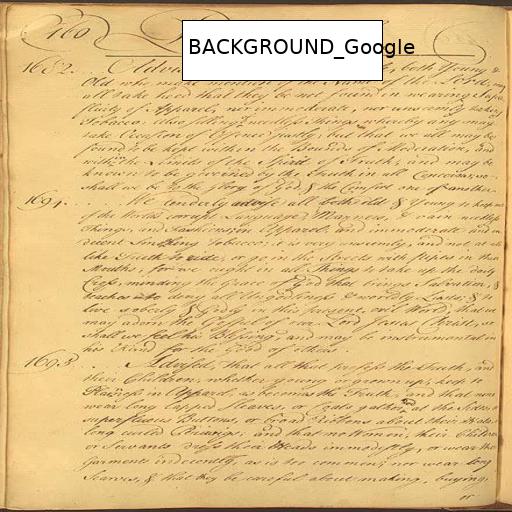 160
BACKGROUND_Google
1682. Advised both Young &
Old who make mention of the Name of the Lord,
all take heed that they be not found in wearing Super
fluity of Apparel, nor immoderate, nor unseemly taking
Tobacco, also selling needless Things whereby any may
take Occasion of Offence justly; but that we all may be
found to be kept within the Bounds of Moderation, and
within the Limits of the Spirit of Truth; and may be
known to be governed by the Truth in all Concerns; so
shall we be to the Glory of God, & the Comfort one of another
1694. We tenderly advise all both old & Young to keep out
of the Worlds corrupt Language, Manners, & vain needless
Things, and Fashions, in Apparel, and immoderate and in
decent Smoking Tobacco; it is very unseemly, and not at all
like Truth to ride, or go in the Streets with Pipes in their
Mouths, for we ought in all Things to take up the daily
Cross, minding the Grace of God that brings Salvation, &
teaches to deny all Ungodliness & worldly Lusts, & to
live soberly & Godly in this present evil World, that we
may adorn the Gospel of our Lord Jesus Christ, so
shall we feel his Blessing, and may be instrumental in
his Hand for the Good of others.
1695 Advised, that all that profess the Truth, and
their Children, whether young or grown up, keep to
Plainness in Apparel, as becomes the Truth, and that none
wear long lapped Sleeves, or Coats gathered at the Sides, or
superfluous Buttons, or broad Ribbons about their Hats, or
long curled Periwigs, and that no Women, their Children
or Servants dress their Heads immodestly, or wear their
Garments indecently, as is too common; nor wear long
Scarves, & that they be careful about making, buying,
or